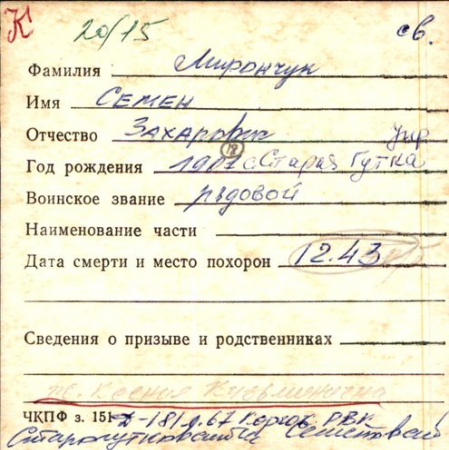 К 20/15 св.
Фамилия Мирончук
Имя Семен
Отчество Захарович Укр
18
Год рождения 1907 с. Старая Гутка
Воинское звание рядовой
Наименование части
Дата смерти и место похорон 12.43
Сведения о призыве и родственниках
ж. Ксения Кузьминична
ЧКПФ з. 151 Д-181 л. 67 РВК